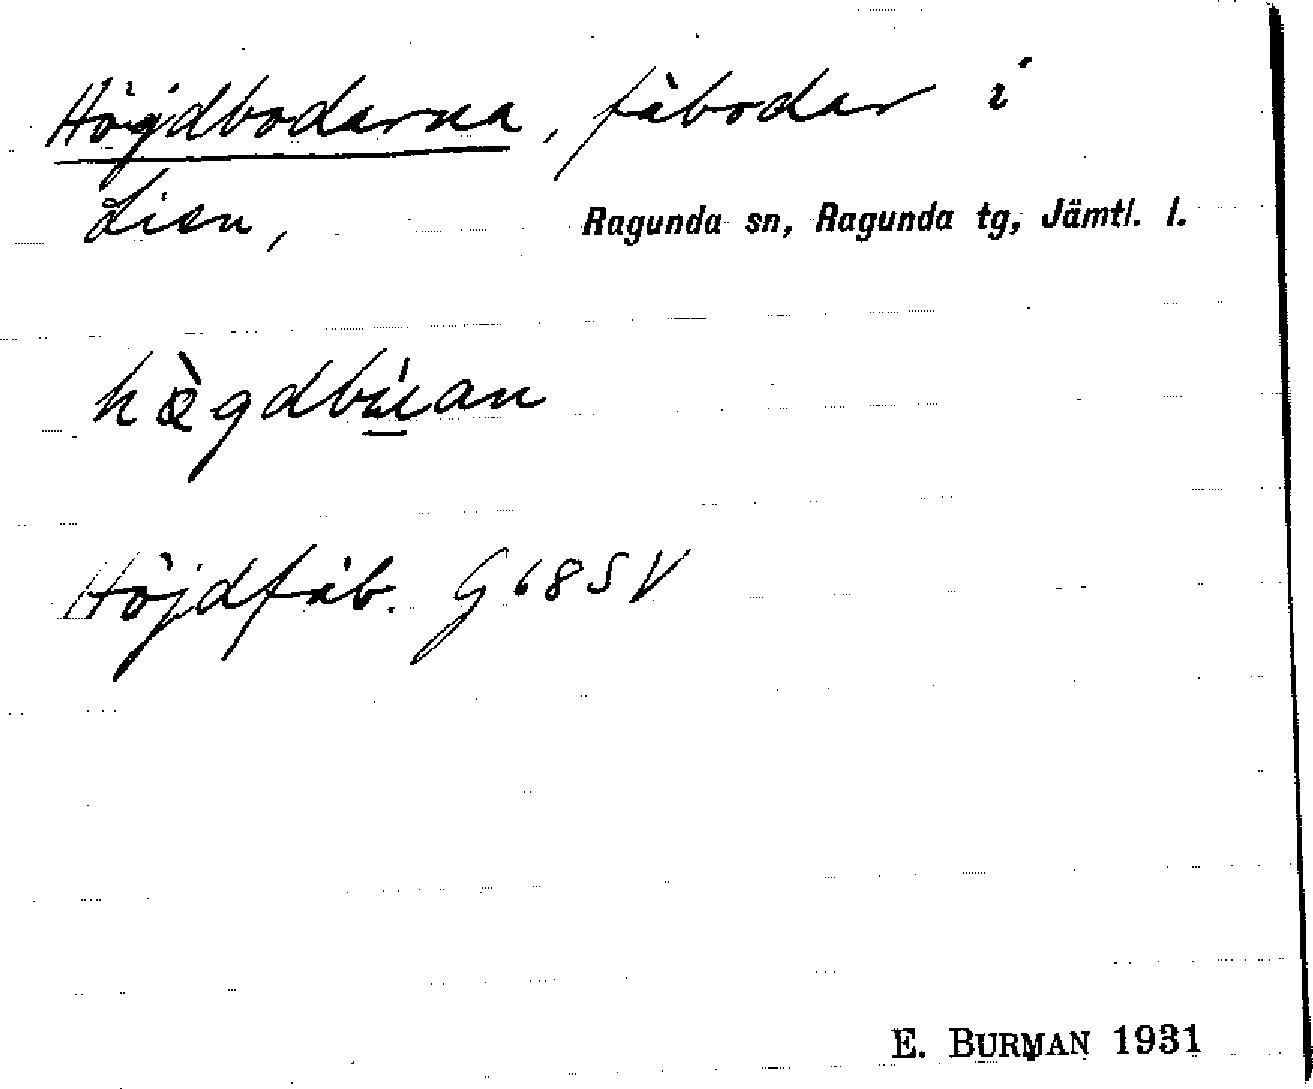 Högdbodarna, fäbodar i
Lien, Ragunda sn, Ragunda tg, Jämtl. l.
hǿgdbúan
Höjdfäb. G 68 SV
E. BURMAN 1931